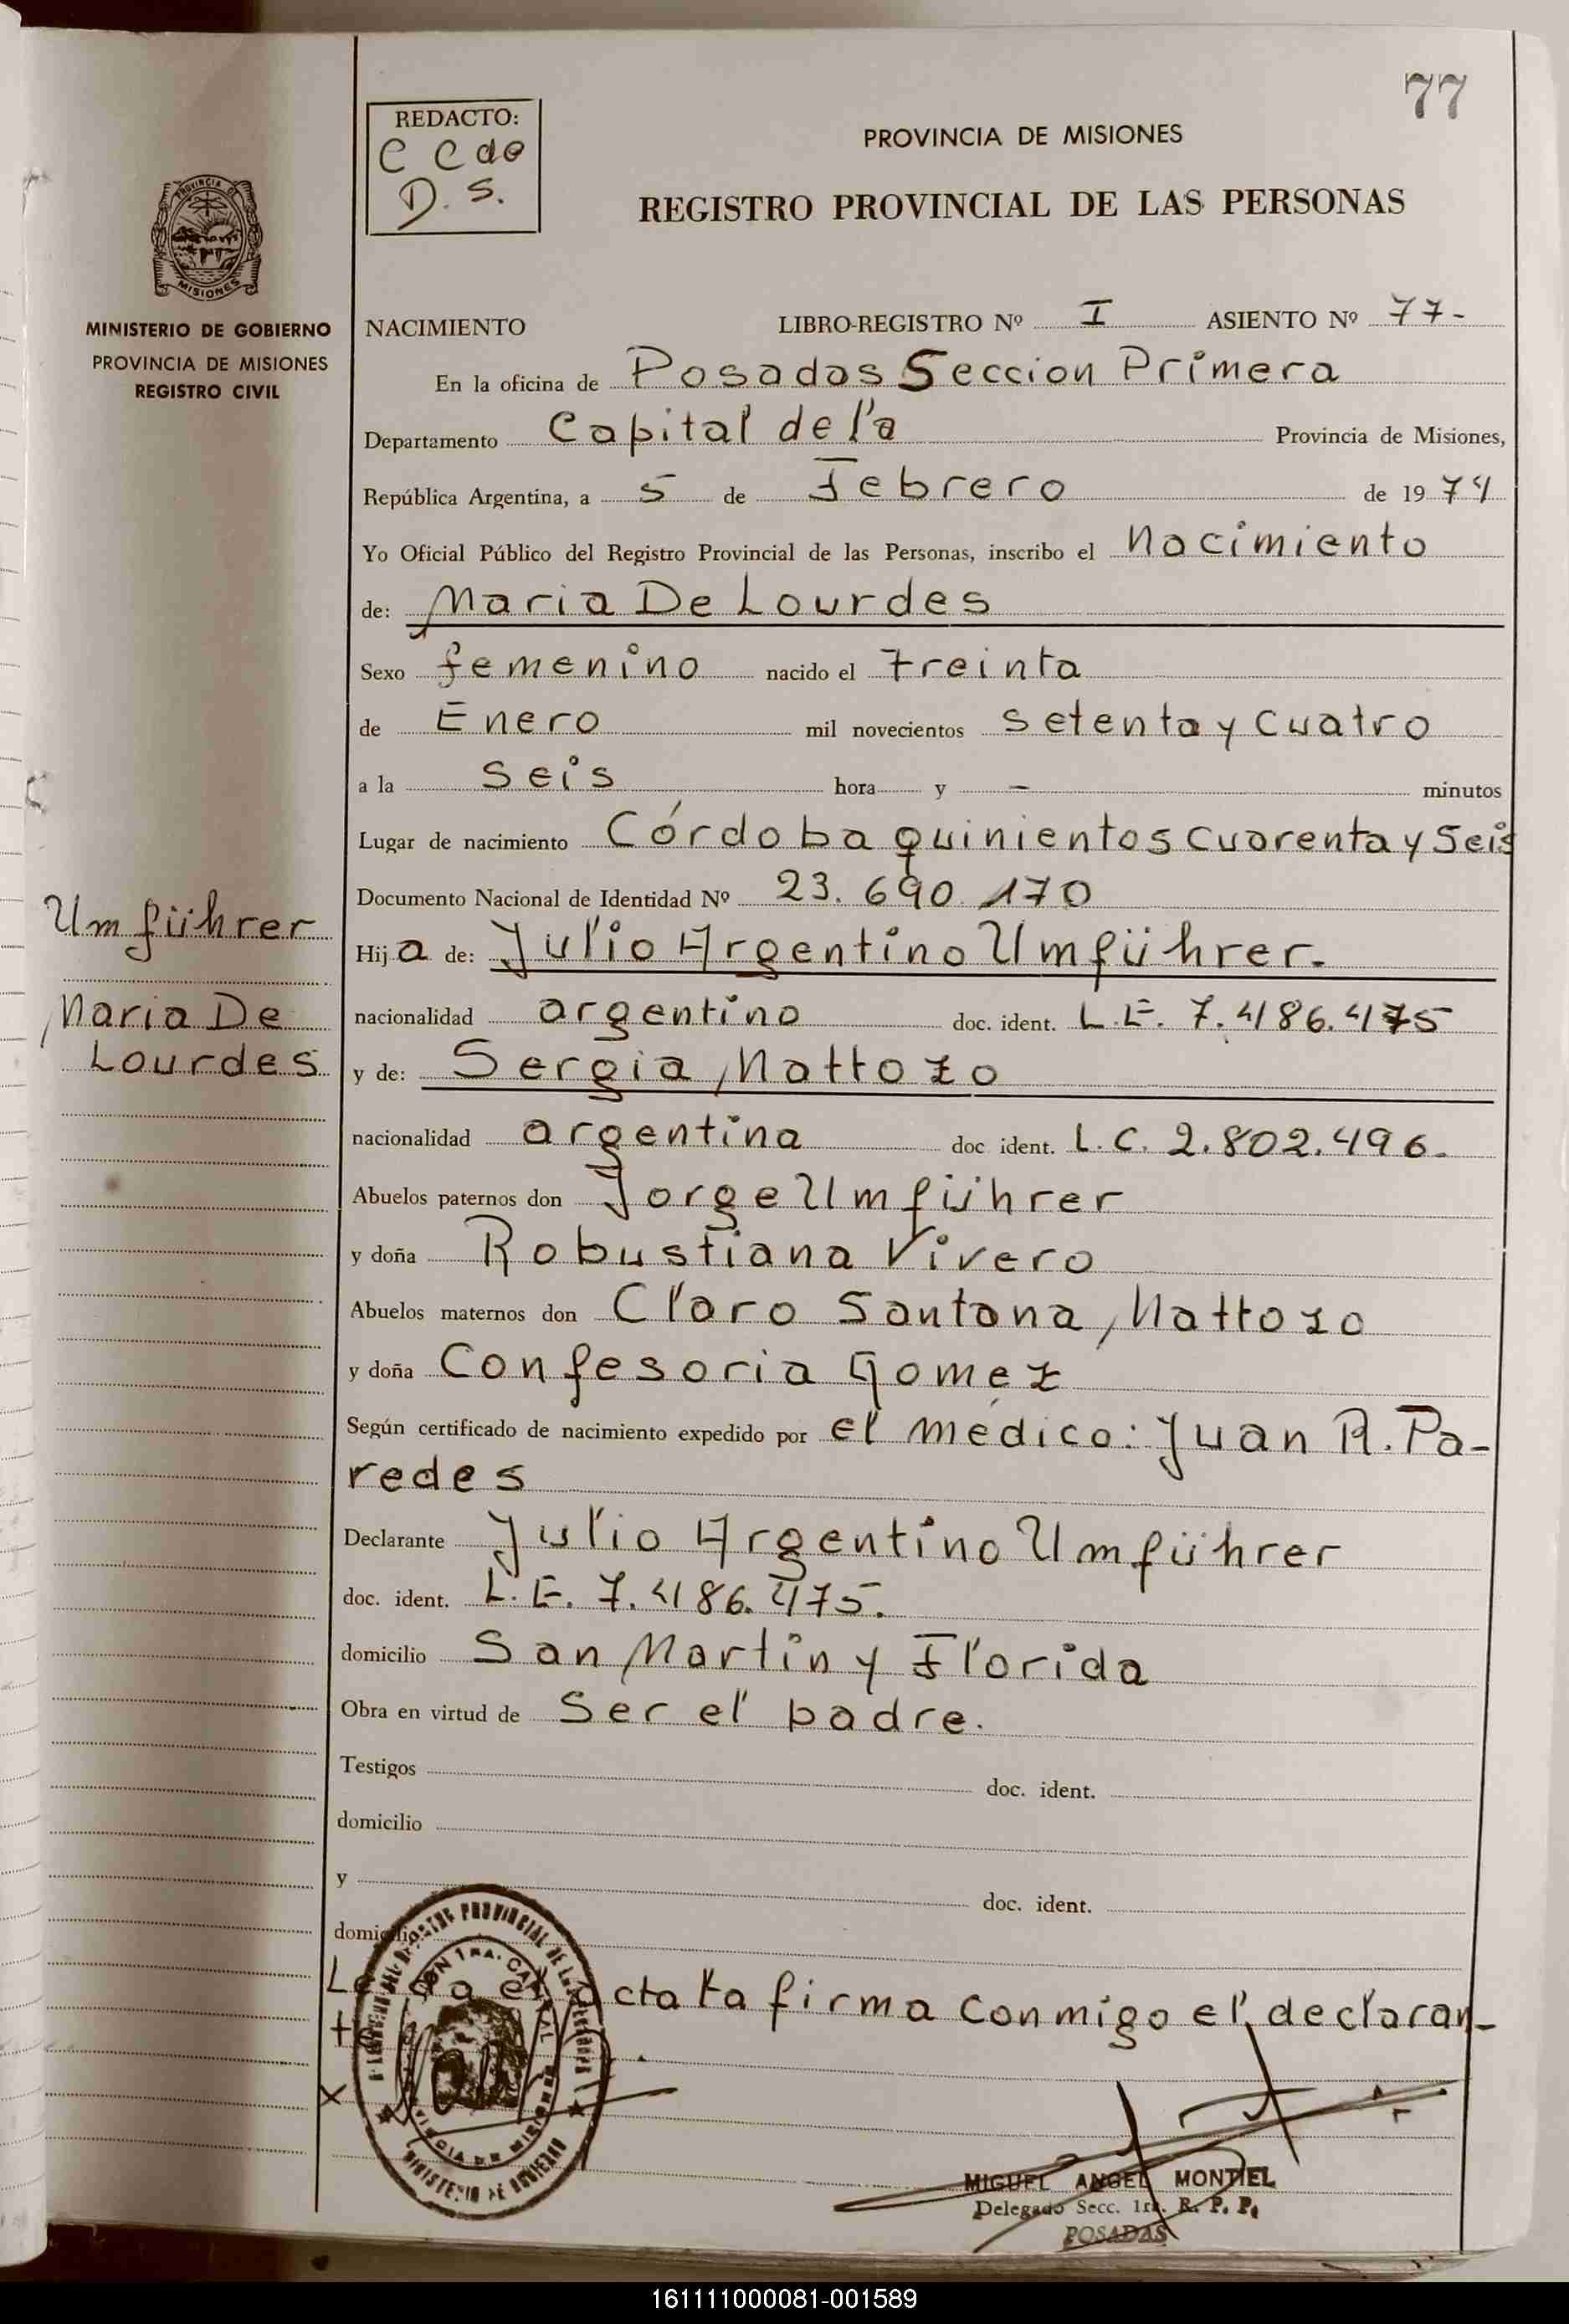 77
REDACTO:
C C de
D. S.
PROVINCIA DE MISIONES
REGISTRO PROVINCIAL DE LAS PERSONAS
PROVINCIA DE
MISIONES
MINISTERIO DE GOBIERNO
PROVINCIA DE MISIONES
REGISTRO CIVIL
NACIMIENTO LIBRO-REGISTRO Nº I ASIENTO Nº 77-
En la oficina de Posadas Seccion Primera
Departamento Capital de la Provincia de Misiones,
República Argentina, a 5 de Febrero de 1974
Yo Oficial Público del Registro Provincial de las Personas, inscribo el Nacimiento
de: Maria De Lourdes
Sexo femenino nacido el treinta
de Enero mil novecientos setenta y cuatro
a la seis hora y - minutos
Lugar de nacimiento Córdoba quinientos cuarenta y seis
Documento Nacional de Identidad Nº 23.690.170
Umführer
Maria De
Lourdes
Hija de: Julio Argentino Umführer.
nacionalidad argentino doc. ident. L.E. 7.486.475
y de: Sergia Mattozo
nacionalidad argentina doc ident. L.C. 2.802.496.
Abuelos paternos don Jorge Umführer
y doña Robustiana Vivero
Abuelos maternos don Claro Santana Mattozo
y doña Confesoria Gomez
Según certificado de nacimiento expedido por el médico: Juan R. Pa-
redes
Declarante Julio Argentino Umführer
doc. ident. L.E. 7.486.475.
domicilio San Martin y Florida
Obra en virtud de ser el padre.
Testigos doc. ident.
domicilio
y doc. ident.
domicilio
acta la firma conmigo el declaran-
te
X
MINISTERIO DE GOBIERNO
MIGUEL ANGEL MONTIEL
Delegado Secc. 1ra. R. P. P.
POSADAS
161111000081-001589